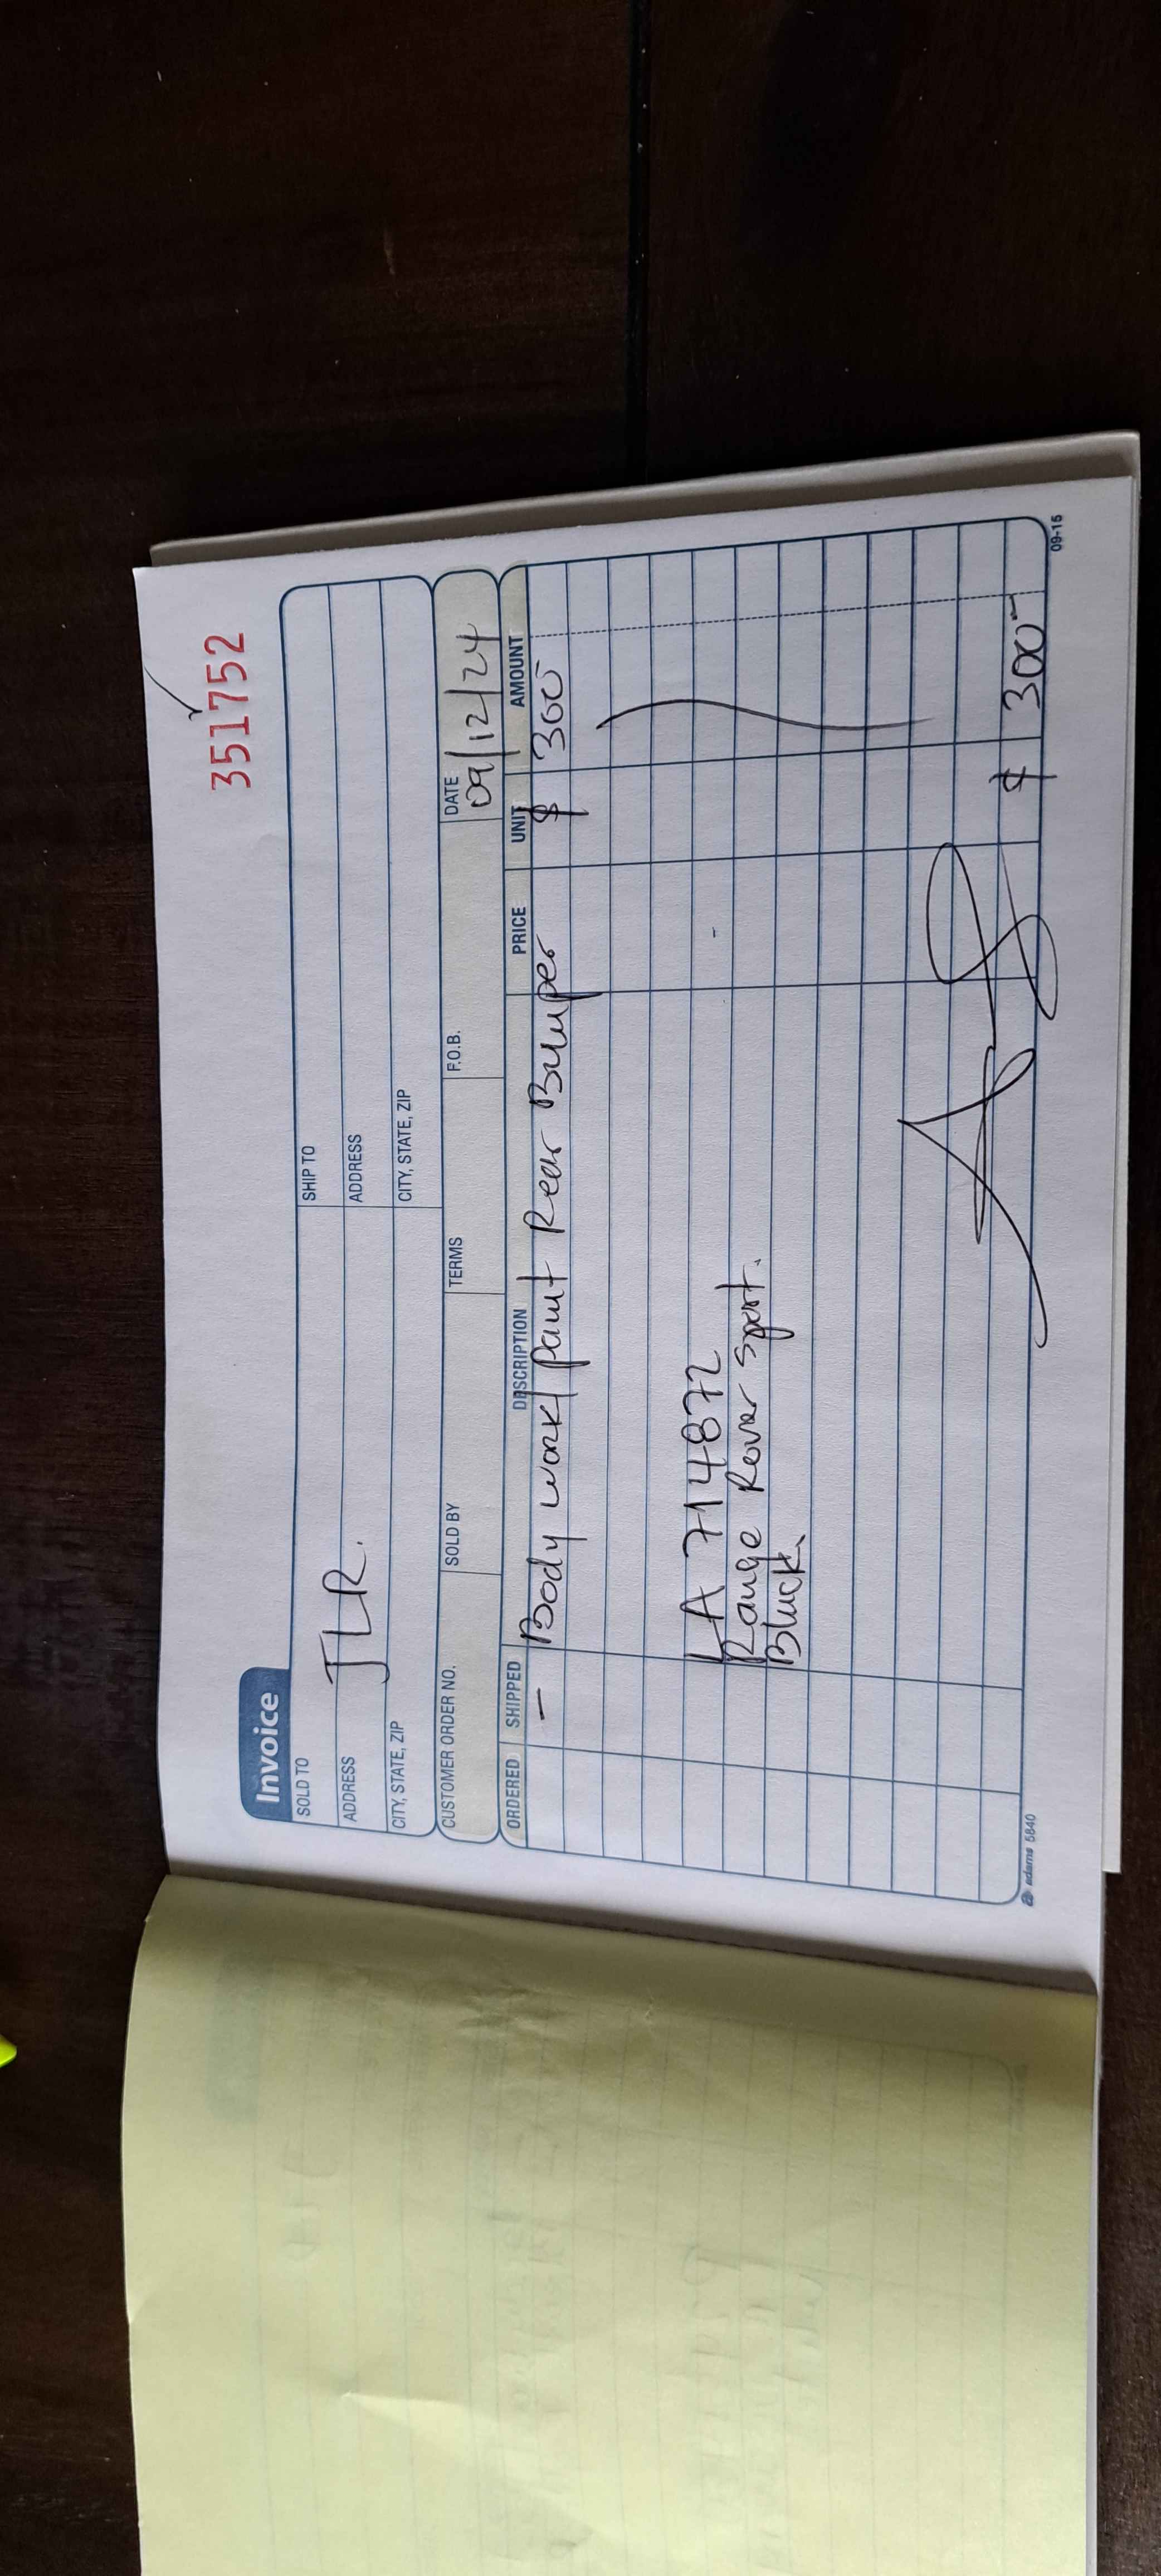 351752
Invoice
SOLD TO
SHIP TO
JLR.
ADDRESS
ADDRESS
CITY, STATE, ZIP
CITY, STATE, ZIP
CUSTOMER ORDER NO. SOLD BY TERMS F.O.B. DATE
09/12/24
ORDERED SHIPPED DESCRIPTION PRICE UNIT AMOUNT
– Body work/ paint Rear Bumper $ 300
LA 714872
Range Rover Sport.
Black.
$ 300-
adams 5840
09-15